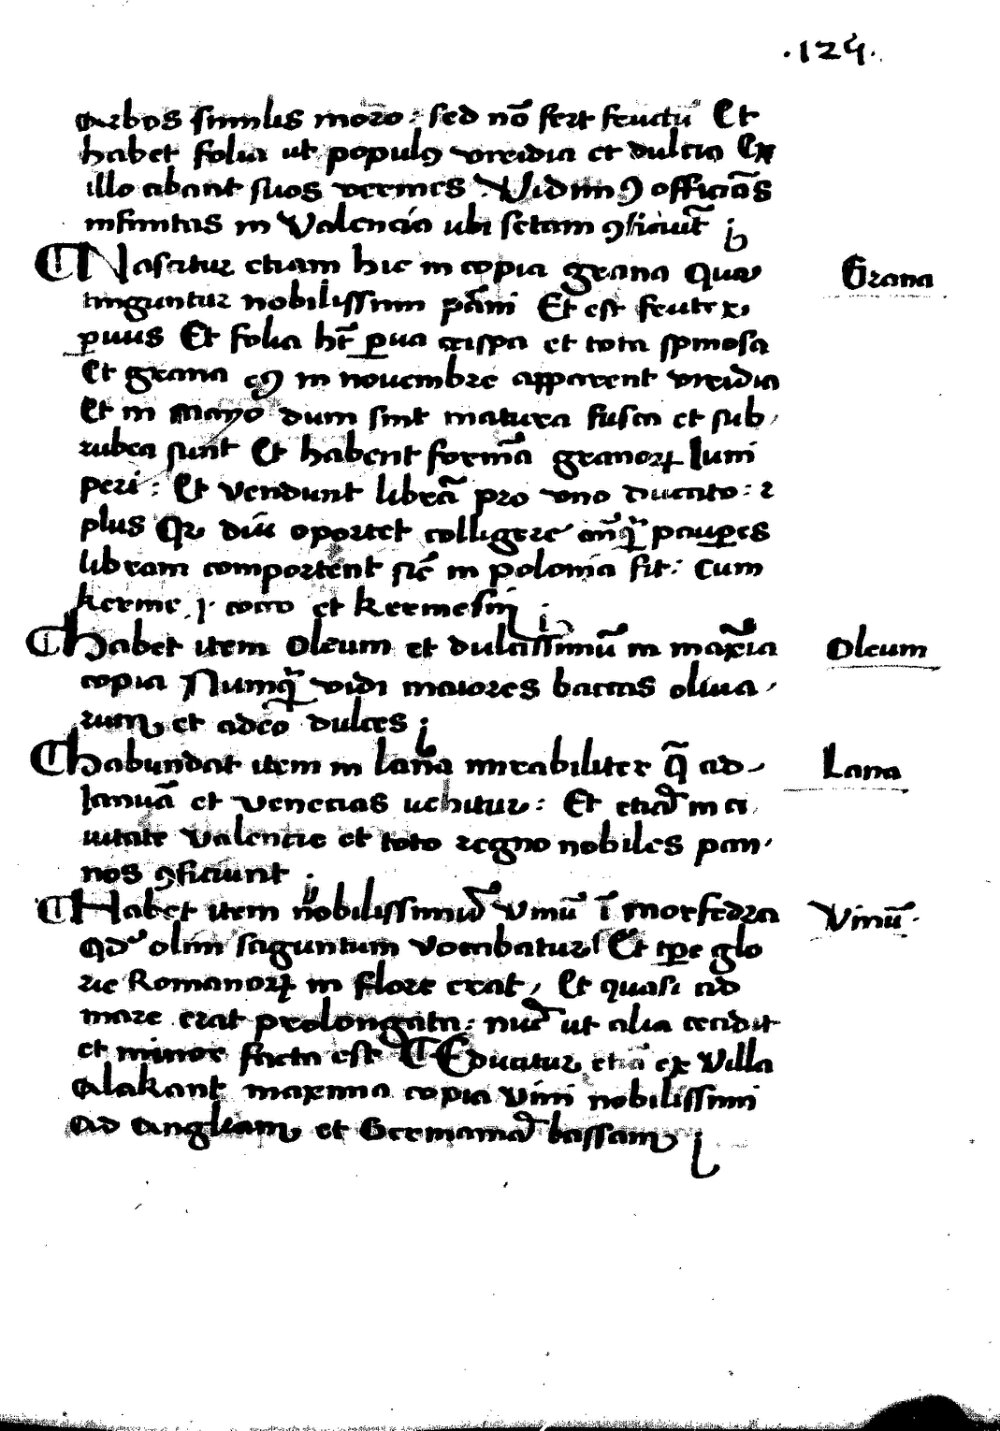 .124.
arbos similis moro: sed nō fert fructū Et
habet folia ut populꝰ viridia et dulcia Ex
illo cibant suos vermes Vidimꝰ officiās
infinitas in Valencia ubi setam ꝯficiūt
¶ Nascitur etiam hic in copia grana qua
Grana
tinguntur nobilissimi pāni Et est frutex
ꝑuus Et folia hn̄t ꝑua crispa et tota spinosa
Et grana eꝰ in novembre apparent viridia
Et in Mayo dum sint matura fusca et sub
rubea sunt Et habent formā granoꝝ Iuni
peri: Et vendunt librā pro uno ducato: 2
plus Qꝛ diu oportet colligere anq̄ pauꝑes
libram comportent sic̄ in polonia fit: Cum
kerme .i. coco et kermesin
¶ Habet item Oleum et dulcissimū in maxīa
Oleum
copia Numq̄ vidi maiores baccas oliva
rum et adeo dulces
¶ Habundat item in lana mirabiliter q̄ ad
Lana
Januā et Venecias uehitur: Et etiā in ci
uitate Valencie et toto regno nobiles pan
nos ꝯficiunt
¶ Habet item nobilissimū vinū ī morfedra
Vinū
Qd olim saguntum vocabatur Et tꝑe glo
rie Romanoꝝ in flore erat, Et quasi ad
mare erat prolongata: nūc ut alia cecidit
et minor facta est ¶ Educitur etiā ex villa
Alakant maxima copia vini nobilissimi
Ad Angliam et Germaniā bassam